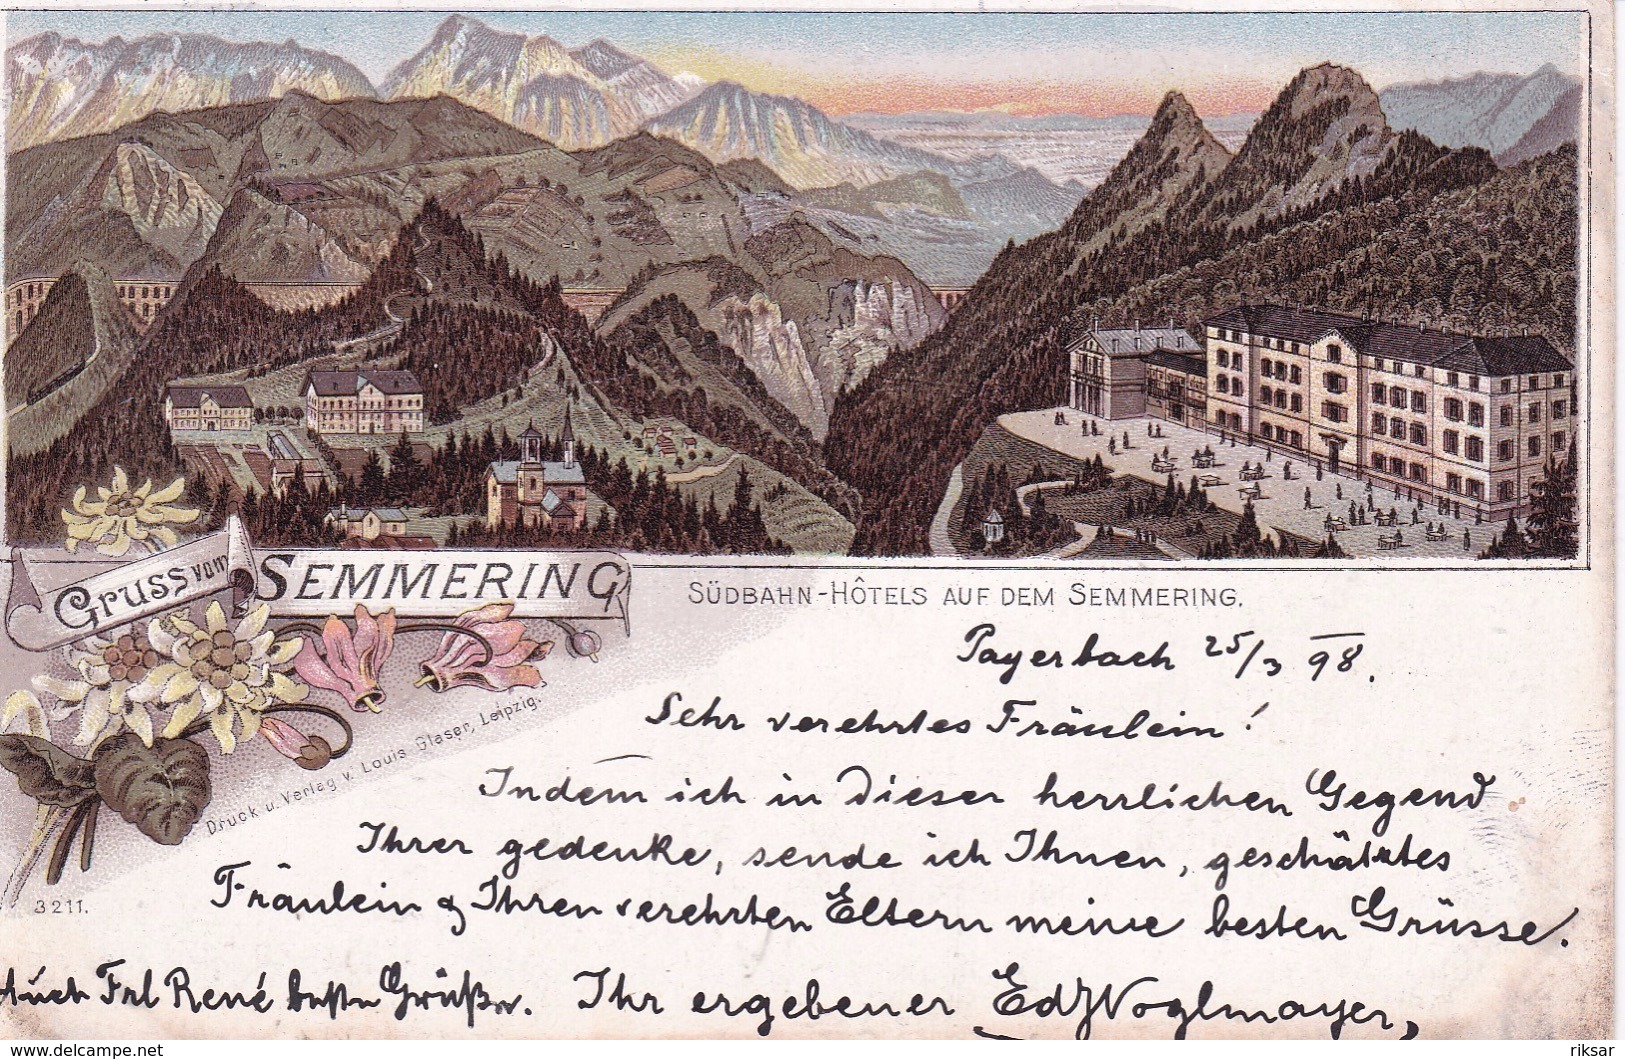 Gruss vom SEMMERING
SÜDBAHN-HÔTELS AUF DEM SEMMERING.
Payerbach 25/3 98.
Sehr verehrtes Fräulein!
Indem ich in dieser herrlichen Gegend
Ihrer gedenke, sende ich Ihnen, geschätztes
Fräulein & Ihren verehrten Eltern meine besten Grüsse.
Auch Frl René besten Grüße. Ihr ergebener Ed Voglmayer,
Druck u. Verlag v. Louis Glaser, Leipzig.
3211.
www.delcampe.net
riksar